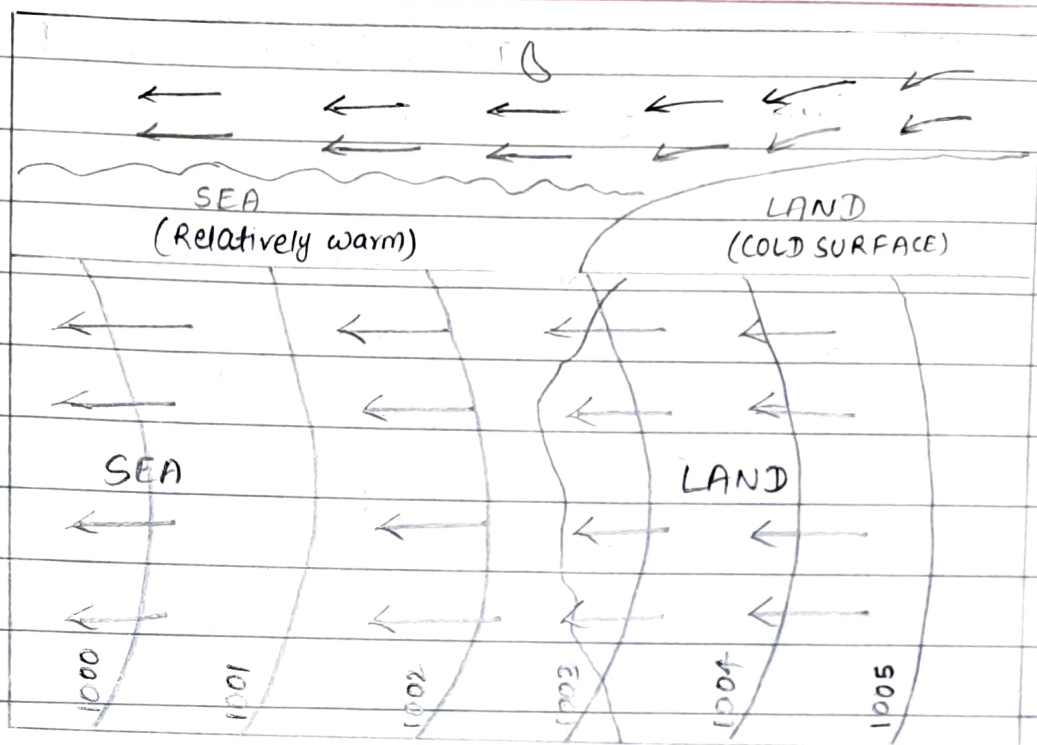 SEA
(Relatively warm)
LAND
(COLD SURFACE)
SEA
LAND
1000
1001
1002
1003
1004
1005